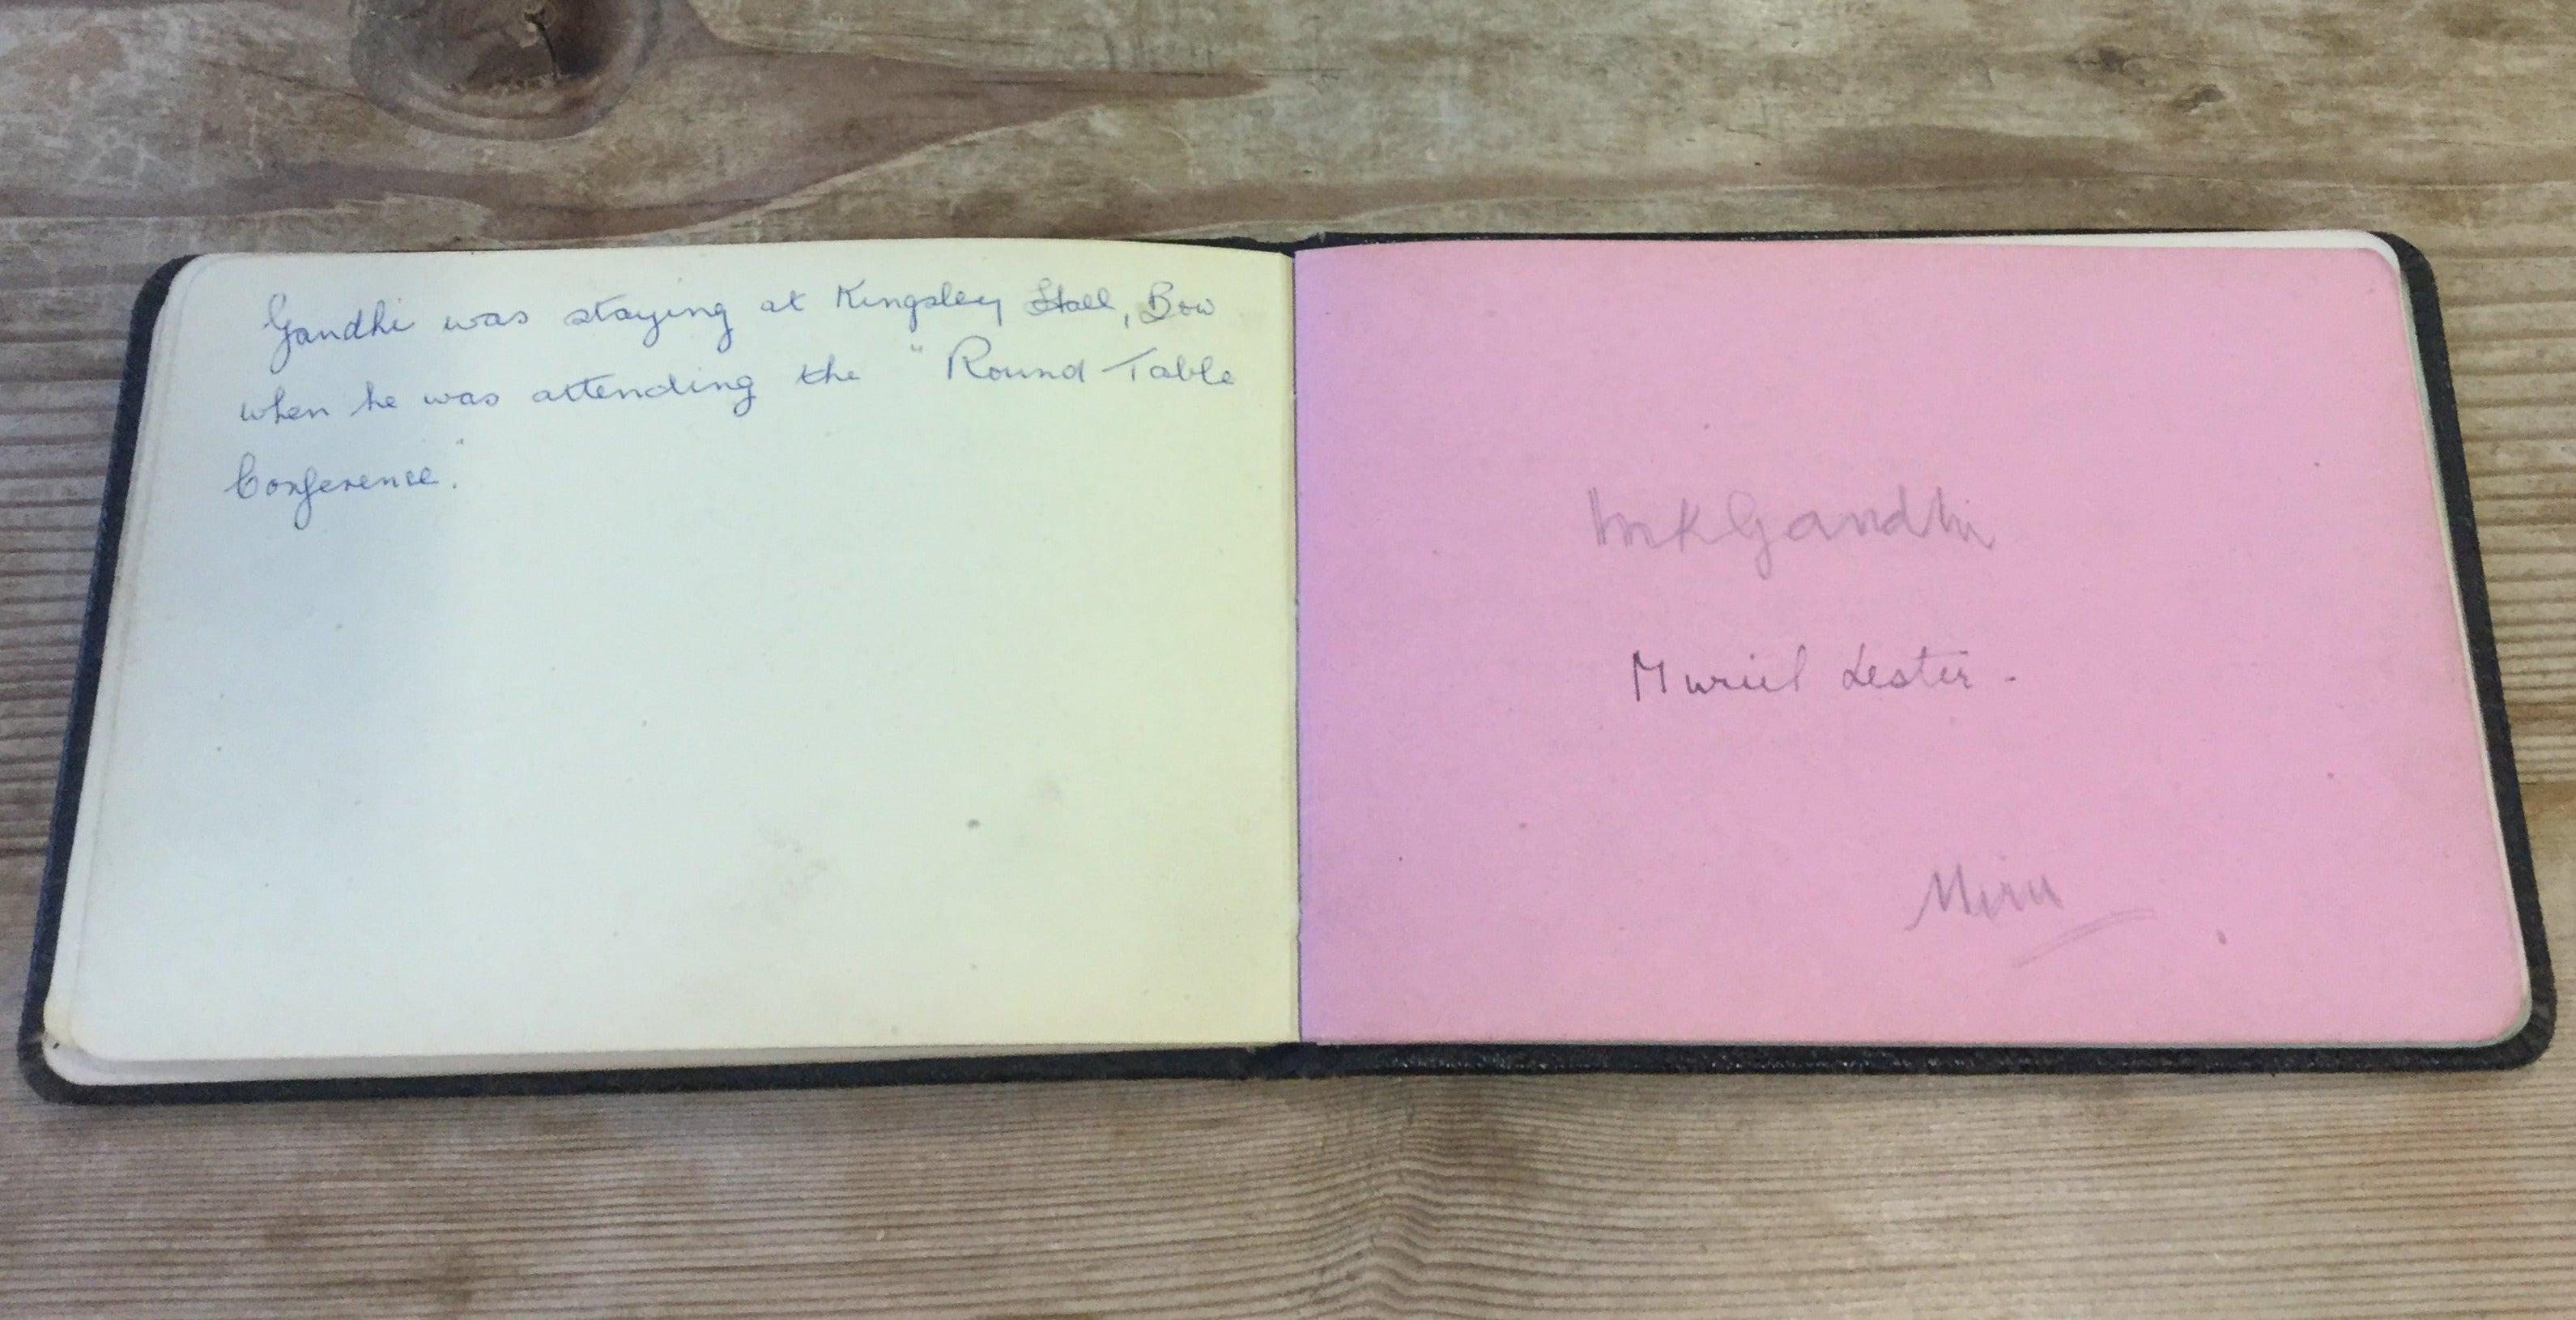 Gandhi was staying at Kingsley Hall, Bow
when he was attending the "Round Table
Conference".
MKGandhi
Muriel Lester.